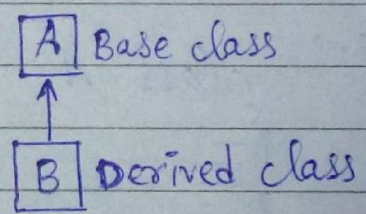 A Base class
B Derived class